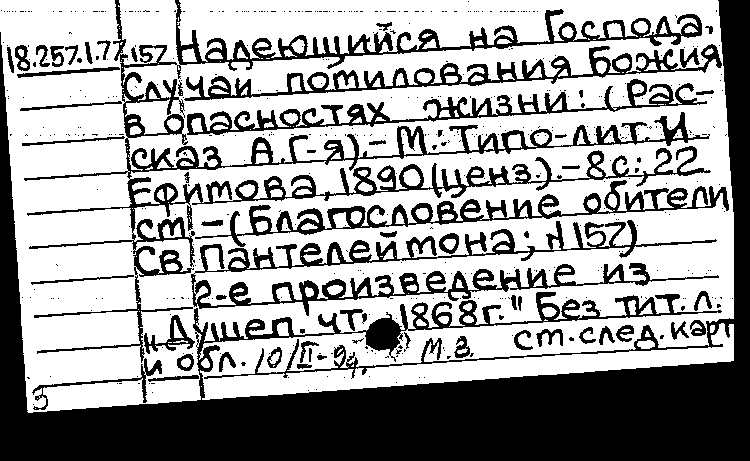 18.257.1.77-157 Надеющийся на Господа.
Случаи помилования Божия
в опасностях жизни: (Рас-
сказ А.Г-я).-М.: Типо-лит. И
Ефимова, 1890(ценз.).-8с.; 22
см.-(Благословение обители
Св Пантелеймона; N 157)
2-е произведение из
"Душеп. чт. 1868г." Без тит. л.
и обл. 10/II-99. М.З. ст. след. карт
3